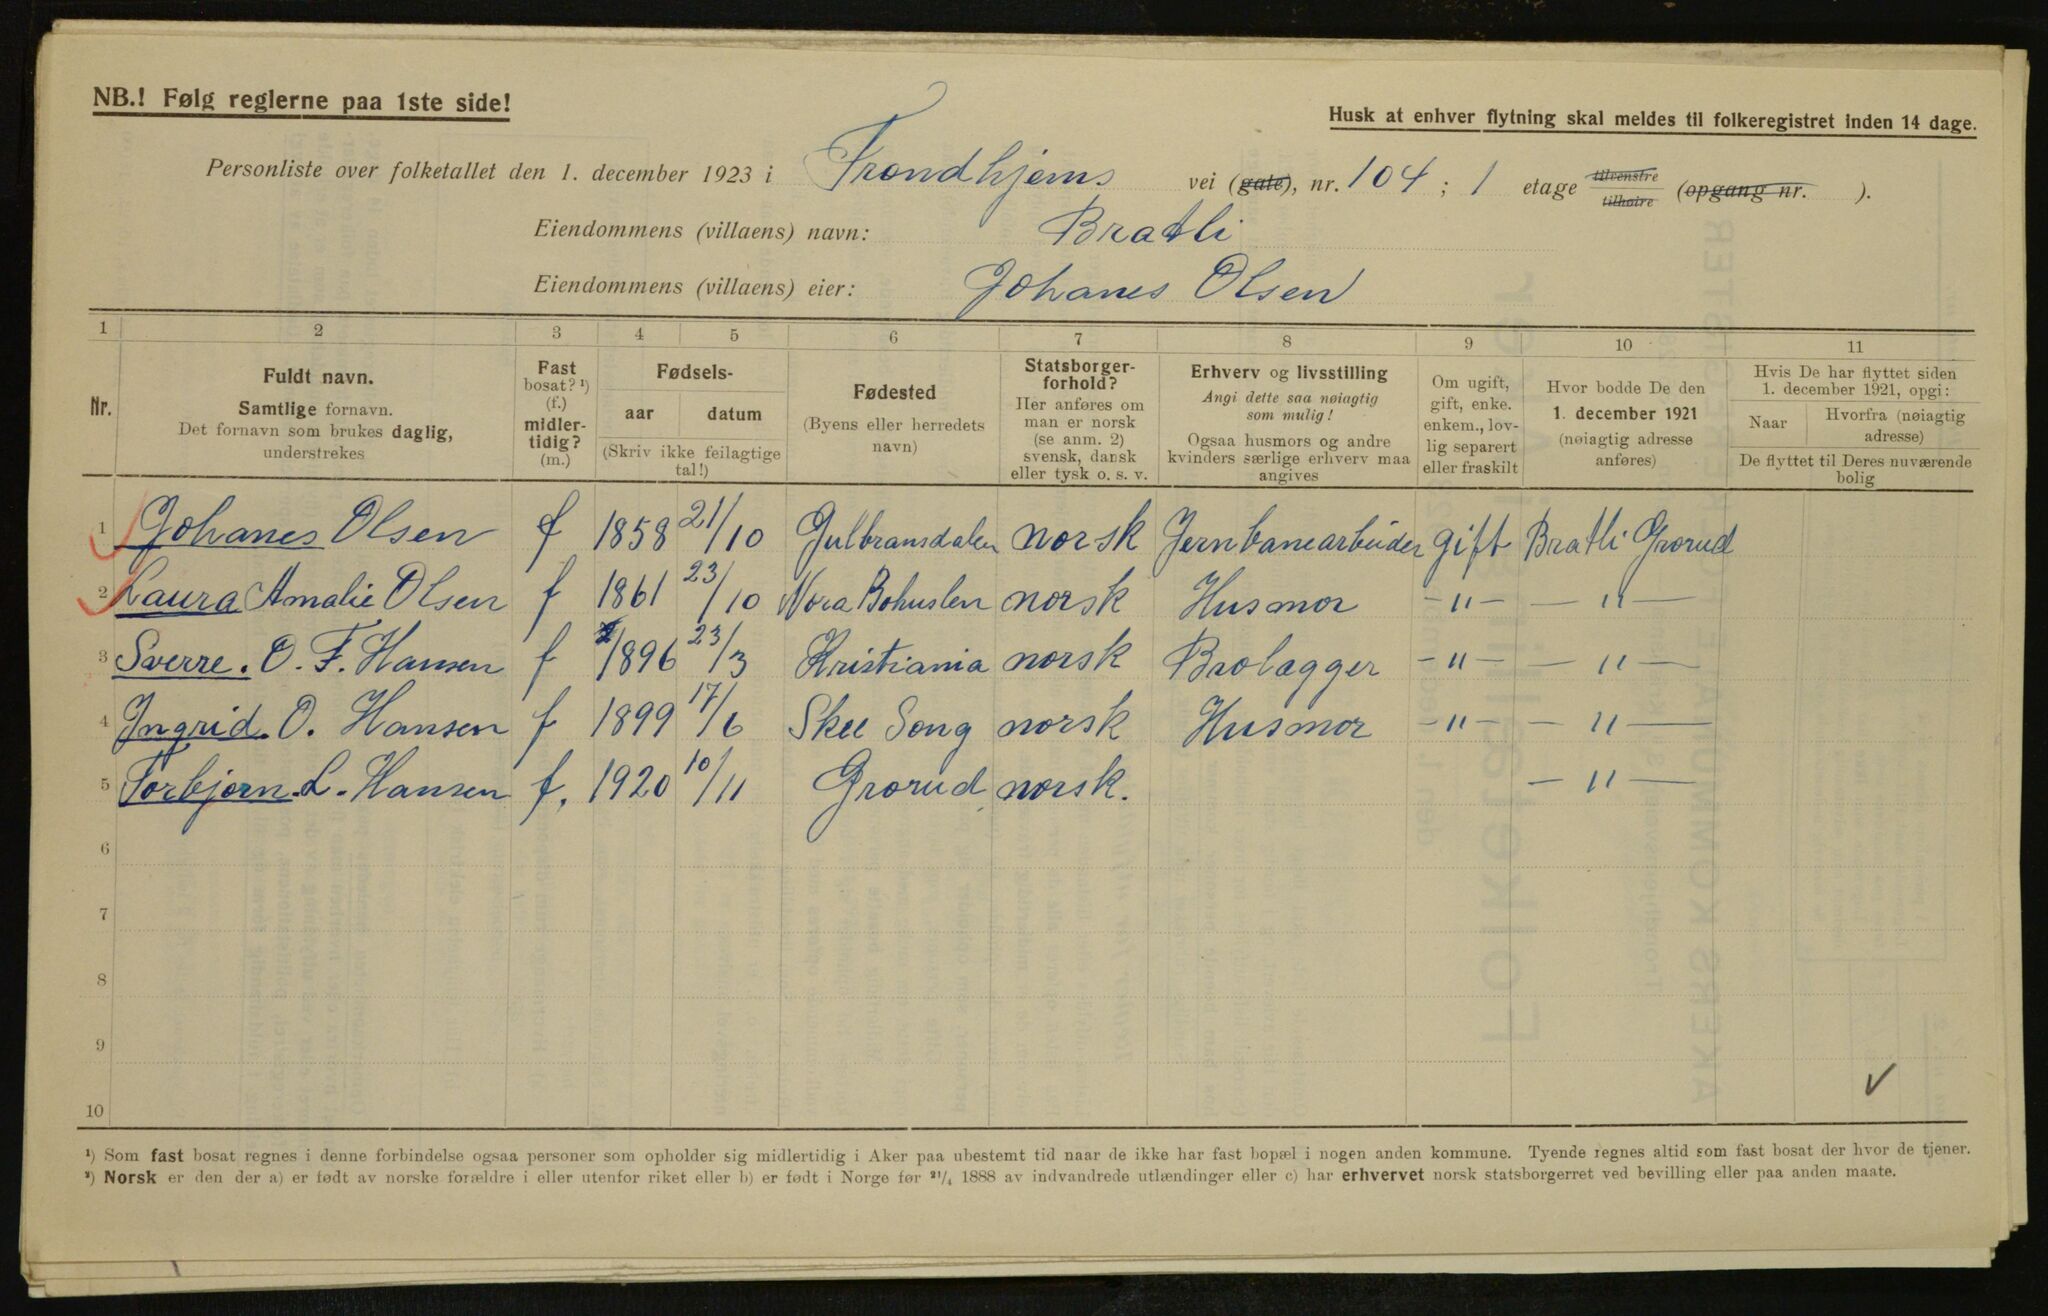 NB.! Følg reglerne paa 1ste side!
Husk at enhver flytning skal meldes til folkeregistret inden 14 dage.
Personliste over folketallet den 1. december 1923 i Trondhjems vei (gate), nr. 104 ; 1 etage tilvenstre tilhøire (opgang nr. ).
Eiendommens (villaens) navn: Bratli
Eiendommens (villaens) eier: Johanes Olsen
1 2 3 4 5 6 7 8 9 10 11
Nr.
Fuldt navn.
Samtlige fornavn.
Det fornavn som brukes daglig,
understrekes
Fast
bosat? ¹)
(f.)
midler-
tidig?
(m.)
Fødsels-
aar datum
(Skriv ikke feilagtige
tal!)
Fødested
(Byens eller herredets
navn)
Statsborger-
forhold?
Her anføres om
man er norsk
(se anm. 2)
svensk, dansk
eller tysk o. s. v.
Erhverv og livsstilling
Angi dette saa nøiagtig
som mulig!
Ogsaa husmors og andre
kvinders særlige erhverv maa
angives
Om ugift,
gift, enke.
enkem., lov-
lig separert
eller fraskilt
Hvor bodde De den
1. december 1921
(nøiagtig adresse
anføres)
Hvis De har flyttet siden
1. december 1921, opgi:
Naar Hvorfra (nøiagtig
adresse)
De flyttet til Deres nuværende
bolig
1 Johanes Olsen f 1858 21/10 Gulbransdalen norsk Jernbanearbeider gift Bratli Grorud
2 Laura Amalie Olsen f 1861 23/10 Nora Bohuslen norsk Husmor -"- -"-
3 Sverre. O. F. Hansen f 1896 23/3 Kristiania norsk Brolægger -"- -"-
4 Ingrid. O. Hansen f 1899 17/6 Skee Song norsk Husmor -"- -"-
5 Torbjørn. L. Hansen f. 1920 10/11 Grorud norsk. -"-
6
7
8
9
10
¹) Som fast bosat regnes i denne forbindelse ogsaa personer som opholder sig midlertidig i Aker paa ubestemt tid naar de ikke har fast bopæl i nogen anden kommune. Tyende regnes altid som fast bosat der hvor de tjener.
²) Norsk er den der a) er født av norske forældre i eller utenfor riket eller b) er født i Norge før 21/4 1888 av indvandrede utlændinger eller c) har erhvervet norsk statsborgerret ved bevilling eller paa anden maate.